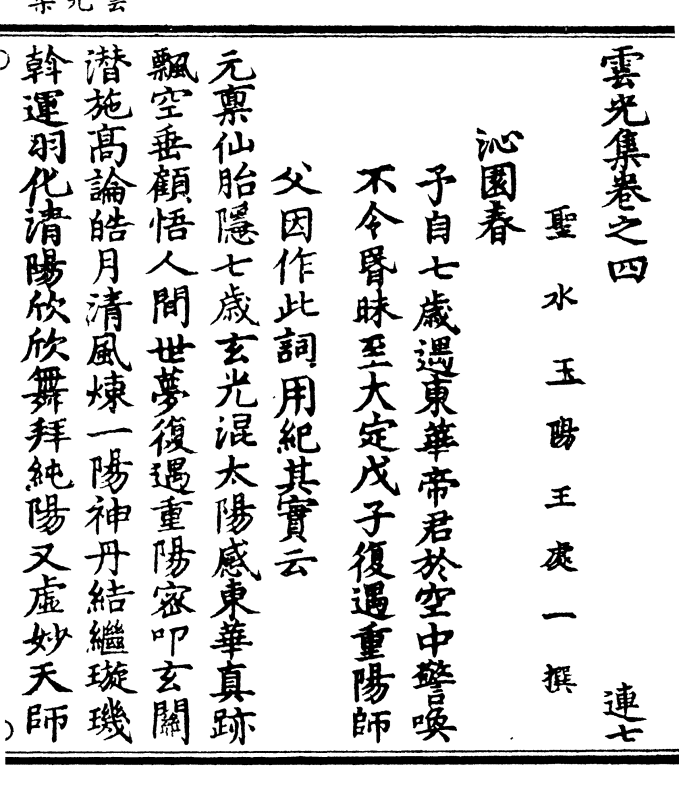 雲光集卷之四
連七
聖水玉陽王處一撰
沁園春
予自七歲遇東華帝君於空中警喚
不令昬昧至大定戊子復遇重陽師
父因作此詞用紀其實云
元禀仙胎隱七歲玄光混太陽感東華真跡
飄空垂顧悟人間世夢復遇重陽宻叩玄關
潜施髙論皓月清風煉一陽神丹結繼璇璣
斡運羽化清陽欣欣舞拜純陽又虛妙天師